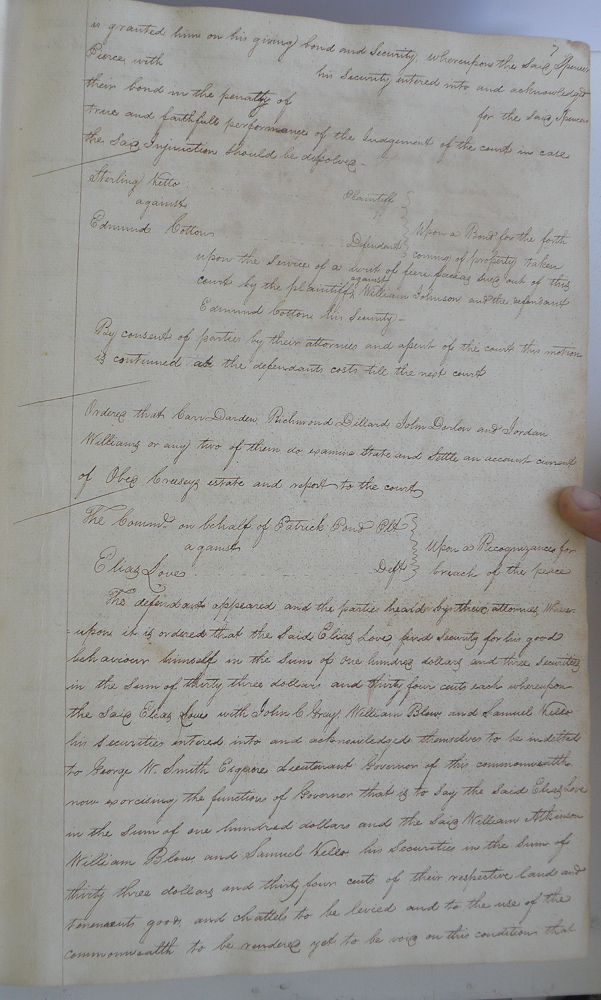 7
is granted him on his giving bond and Security, whereupon the said Spencer
Pierce with his Security entered into and acknowledged
their bond in the penalty of for the said Spencer
true and faithfull performance of the Judgement of the court in case
the said Injunction should be dissolved -
Sterling Kello Plaintiff
against
Edmund Cotton Defendant
Upon a Bond for the forth
coming of property taken
upon the service of a writ of fiere facias sued out of this
court by the plaintiff against William Johnson and the defendant
Edmund Cotton his Security -
By consent of parties by their attornies and assent of the court this motion
is continued at the defendants costs till the next court
Ordered that Carr Darden, Richmond Dillard, John Denson and Jordan
Williams or any two of them do examine state and settle an account current
of Obed estate and report to the court
The Commth. on behalf of Patrick Pond Plt
against
Elias Love Deft
Upon a Recognizance for
breach of the peace
The defendant appeared and the parties heard by their attornies, Where-
upon it is ordered that the said Elias Love, find security for his good
behaviour himself in the sum of one hundred dollars and three Securities
in the sum of thirty three dollars and thirty four cents each whereupon
the said Elias Love with John C Gray, William Blow, and Samuel Kello
his securities entered into and acknowledged themselves to be indebted
to George W. Smith Esquire Lieutenant Governor of this commonwealth
now exercising the functions of Governor that is to say the said Elias Love
in the sum of one hundred dollars and the said William Atkinson
William Blow, and Samuel Kello, his Securities in the sum of
thirty three dollars and thirty four cents of their respective land and
tenements goods and chattels to be levied and to the use of the
commonwealth to be rendered yet to be void on this condition that